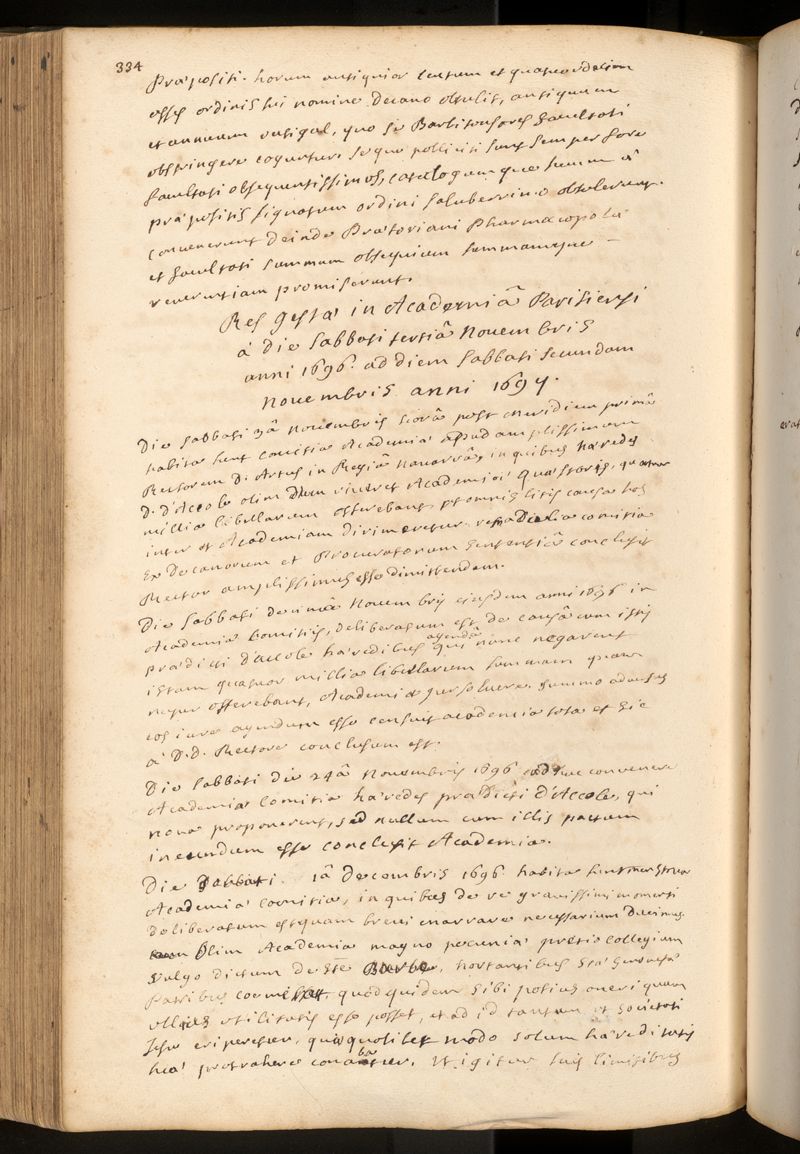 334
Præpositi. horum antiquior centum et quatuordecim
asses ordinis sui nomine Decano obtulit, antiquum
et annuum vectigal, quo se Barbitonsores facultati
obstringere coguntur. seque polliciti sunt semper fore
facultati obsequentissimos, catalogumque suum à
præpositis signatum ordini saluberrimo obtulerunt.
convenerunt deinde Prætoriani Pharmacopolæ
et facultati summum obsequium summamque –
reverentiam promiserunt.
Res gesta in Academiâ Parisiensi
à die sabbati tertiâ Novembris
anni 1696. ad diem sabbati secundam
Novembris anni 1697.
Die sabbati 3â Novembris horâ post meridiem primâ
habita sunt comitia Academiæ apud amplissimum
Rectorem D. Artus in Regiâ Navarrâ, in quibus hæredes
D. d'Acole olim dum viveret Academiæ Quæstoris, quatuor
millia libellarum offerebant, ut omnis litis causa hos
inter et Academiam dirimeretur. comitia
Ex Decanorum et Procuratorum sententiâ conclusit
Rector amplissimus esse dimittendam.
Die sabbati decimâ Novembris eiusdem anni 1696 in
Academiæ Comitiis, deliberatum est de causâ cum istis
prædicti d'Acole hæredibus agendâ qui nunc negarent
istam quatuor millia libellarum summam quam
nuper offerebant, Academiæ persolvere. summo adversus
eos iure agendum esse censuit academia tota et sic
à D.D. Rectore conclusum est.
Die sabbati die 24â Novembris 1696 adhuc convenere
Academiæ Comitia hæredes prædicti d'Acole, qui
nova proponerent, sed nullum cum illis pactum
ineundum esse conclusit Academia.
Die Sabbati. 1â Decembris 1696 habita sunt menstrua
Academiæ comitia, in quibus de re gravissimi momenti
deliberatum est quam brevi enarrare necessarium ducimus.
Olim Academia magno pecuniæ pretio collegium
vulgo dictum de Ste Barbe, hortantibus Stæ Genovefæ
Patribus quod quidem sibi potius oneri quam
ullius utilitatis esse posset, et ad id tantum ut societati
Jesu eriperetur, quæ quolibet modo solum hæreditatis
suæ protrahere conabatur. Ut igitur suis limitibus